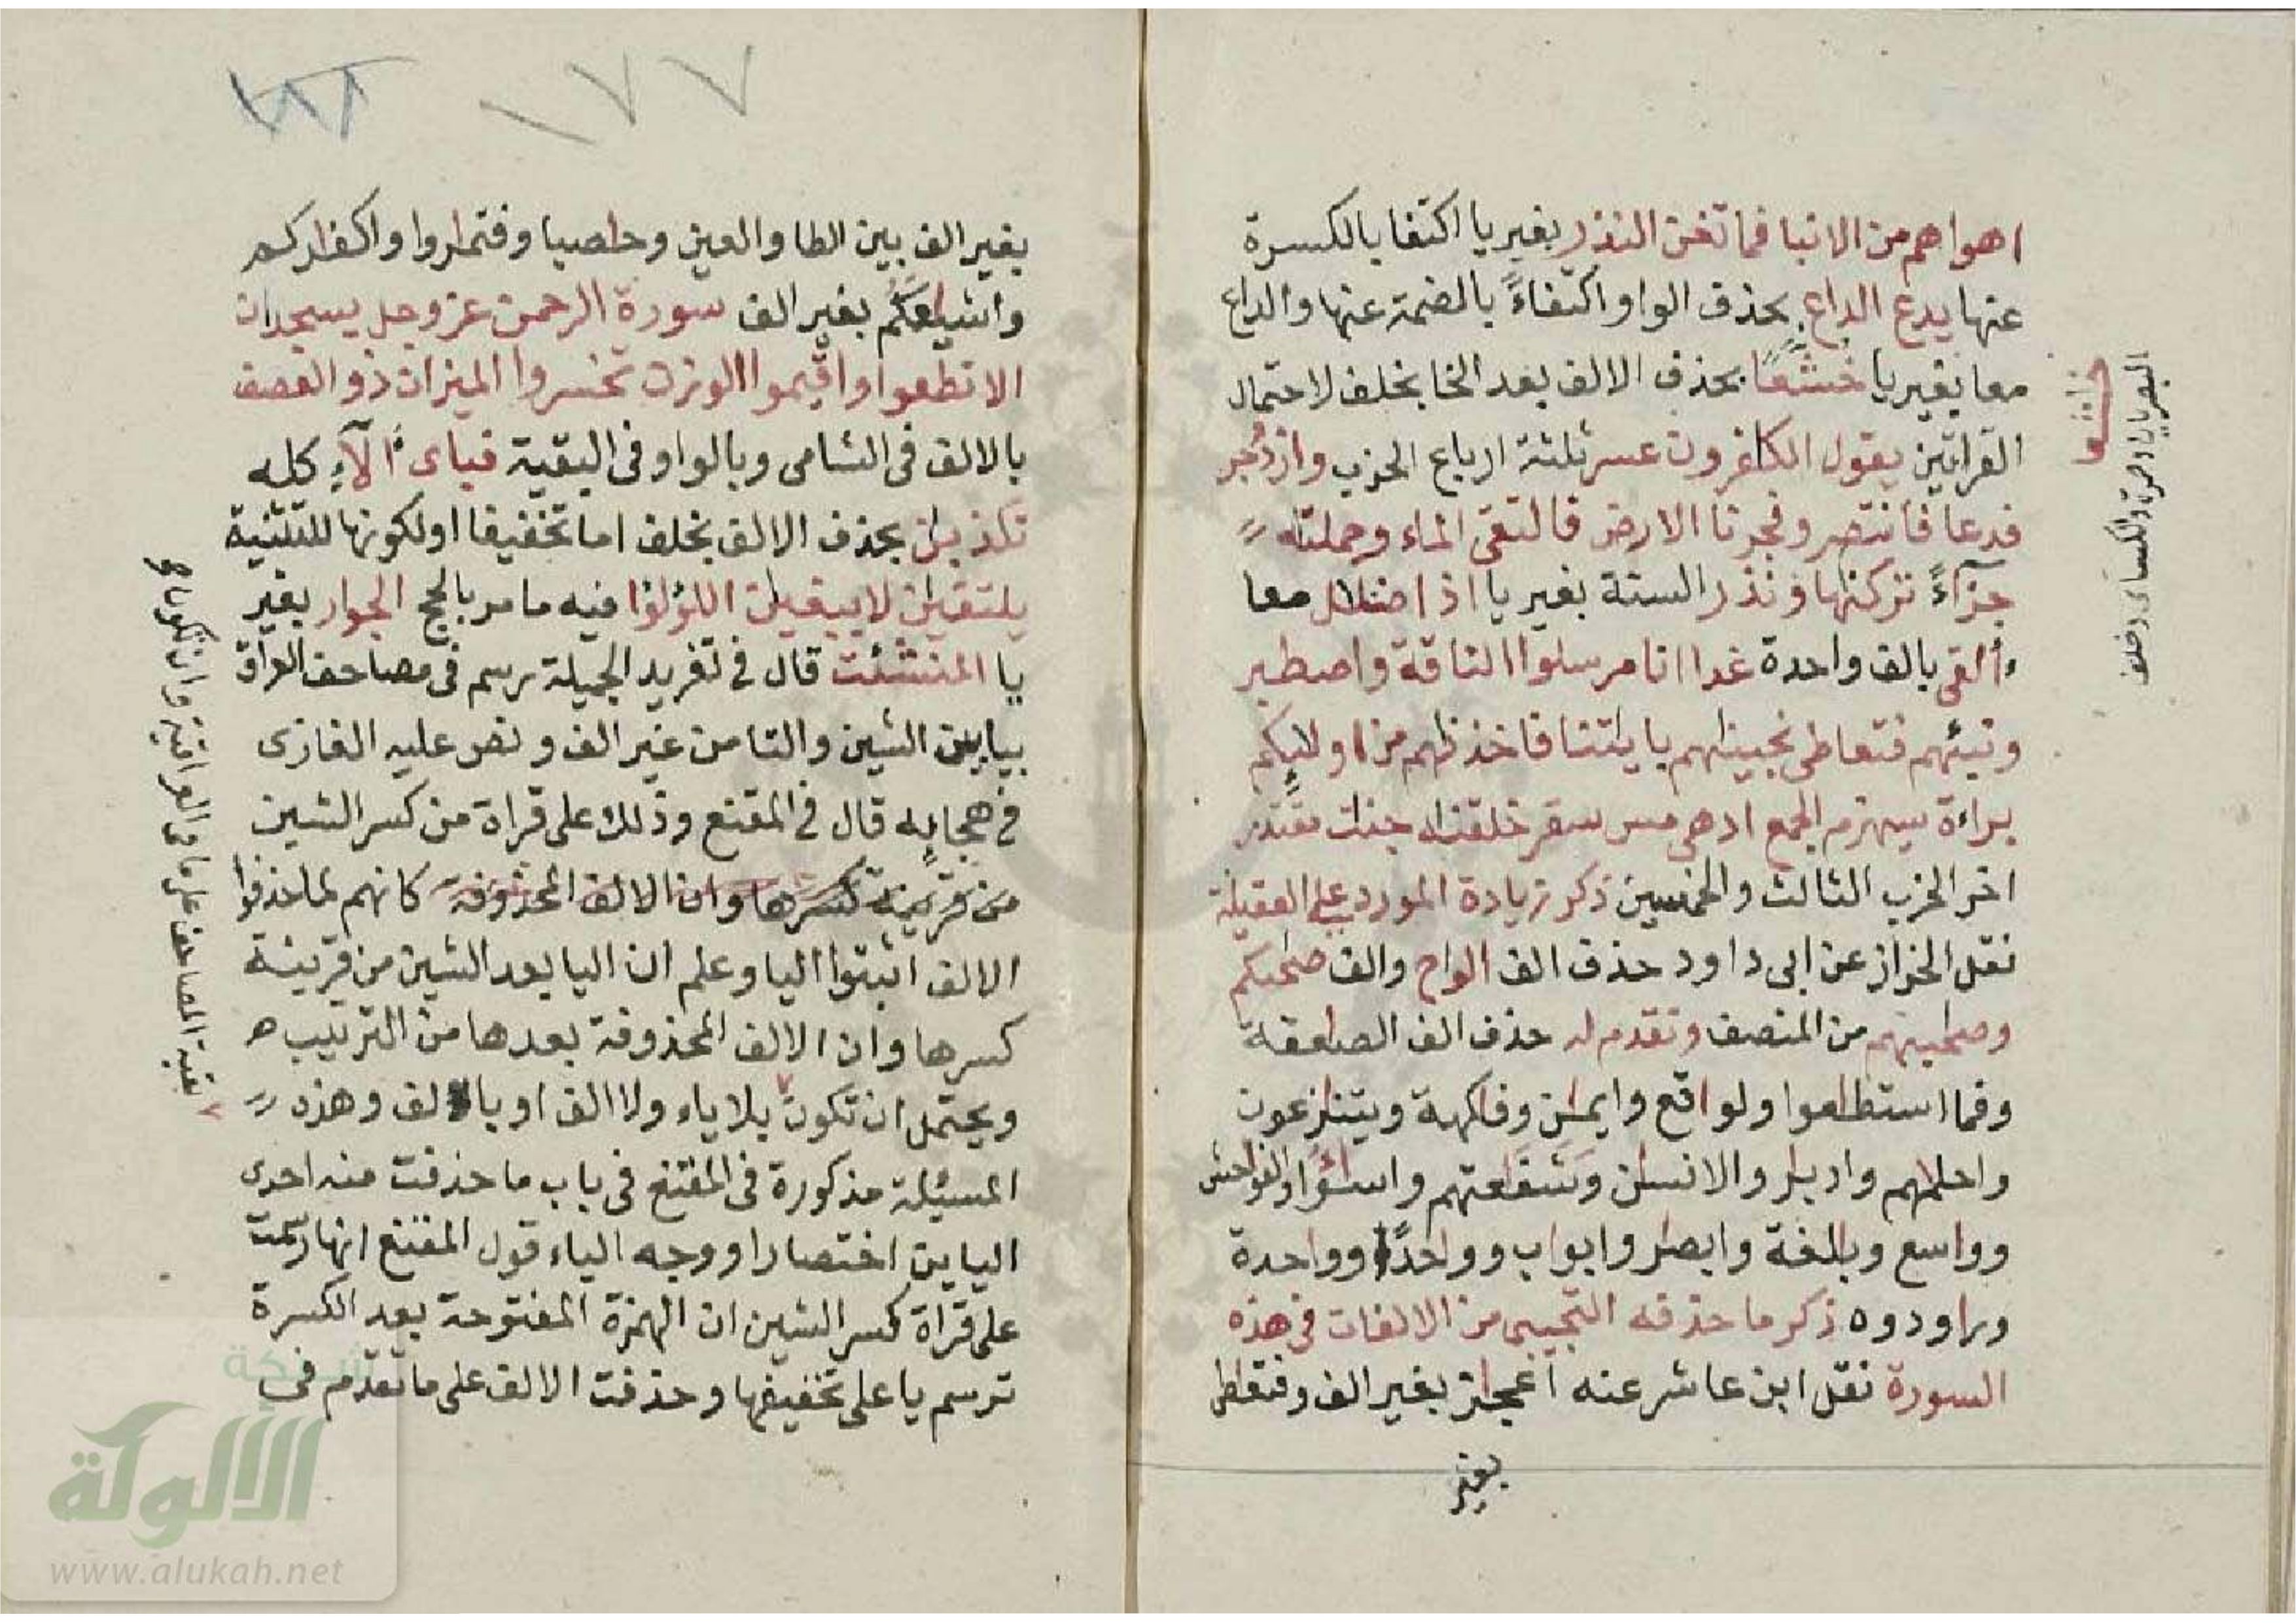 اهواهم من الانبا فما تغن النذر بغير يا اكتفا بالكسرة
عنها يدع الداع بحذف الواو اكتفاءً بالضمة عنها والداع
معا بغير يا خشعًا بحذف الالف بعد الخا بخلف لاحتمال
القراتين يقول الكفرون عسر ثلثة ارباع الحزب وازدجر
فدعا فانتصر وفجرنا الارض فالتقى الماء وحملنه
جزآءً تركنها ونذر الستة بغير يا اذا ضلل معا
ءألقى بالف واحدة غدا انا مرسلوا الناقة واصطبر
ونبئهم فتعاطى نجينهم بايتنا فاخذنهم من اولئكم
براءة سيهزم الجمع ادهى مس سقر خلقنه جنت مقتدر
اخر الحزب الثالث والخمسين ذكر زيادة المورد على العقيلة
نقل الخراز عن ابى داود حذف الف الواح والف صحبكم
وصحبهم من المنصف وتقدم له حذف الف الصعقة
وفما استطعوا ولواقع وايمن وفكهة ويتنزعون
واحلمهم وادبر والانسن وشفعتهم واسئوا والفواحش
وواسع وبلغة وابصر وابواب وواحدًا وواحدة
وراودوه ذكر ما حذفه التجيبى من الالفات فى هذه
السورة نقل ابن عاشر عنه اعجز بغير الف وفتعطى
بغير
خشعا
البصريان وحمزة والكسائى وخلف
١٧٧
١٨٢
بغير الف بين الطا والعين وحصبا وفتمروا واكفركم
واشيعكم بغير الف سورة الرحمن عز وجل يسجدان
الا تطغوا واقيموا الوزن تخسروا الميزان ذو العصف
بالالف فى الشامى وبالواو فى البقية فباى ءالآء كله
تكذبن بحذف الالف بخلف اما تخفيفا او لكونها للتثنية
يلتقين لا يبغين اللؤلؤا فيه ما مر بالحج الجوار بغير
يا المنشئت قال فى تغريد الجميلة رسم فى مصاحف العراق
بيا بين الشين والتا من غير الف ونص عليه الغازى
فى هجايه قال فى المقنع وذلك على قراة من كسر الشين
من قرينة كسرها وان الالف المحذوفة كانهم لما حذفوا
الالف اثبتوا اليا وعلم ان اليا بعد الشين من قرينة
كسرها وان الالف المحذوفة بعدها من الترتيب ه
ويحتمل ان تكون بلا ياء ولا الف او بالف وهذه
المسئلة مذكورة فى المقنع فى باب ما حذفت منه احدى
اليائين اختصارا ووجه الياء قول المقنع انها رسمت
على قراة كسر الشين ان الهمزة المفتوحة بعد الكسرة
ترسم يا على تخفيفها وحذفت الالف على ما تقدم فى
بقية المصاحف على ما فى العراقية وان تكون
شبكة
الألوكة
www.alukah.net